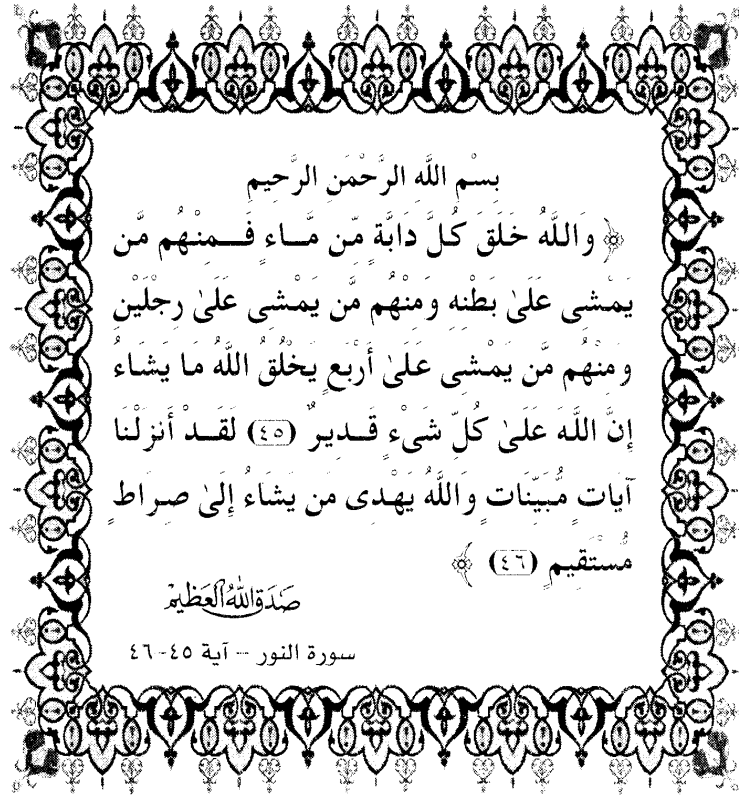 بِسْمِ اللَّهِ الرَّحْمَنِ الرَّحِيمِ
﴿ وَاللَّهُ خَلَقَ كُلَّ دَابَّةٍ مِّن مَّاءٍ فَمِنْهُم مَّن
يَمْشِى عَلَىٰ بَطْنِهِ وَمِنْهُم مَّن يَمْشِى عَلَىٰ رِجْلَيْنِ
وَمِنْهُم مَّن يَمْشِى عَلَىٰ أَرْبَعٍ يَخْلُقُ اللَّهُ مَا يَشَاءُ
إِنَّ اللَّهَ عَلَىٰ كُلِّ شَىْءٍ قَدِيرٌ (٤٥) لَقَدْ أَنزَلْنَا
آيَاتٍ مُّبَيِّنَاتٍ وَاللَّهُ يَهْدِى مَن يَشَاءُ إِلَىٰ صِرَاطٍ
مُّسْتَقِيمٍ (٤٦) ﴾
صَدَقَ اللهُ العَظِيم
سورة النور – آية ٤٥-٤٦